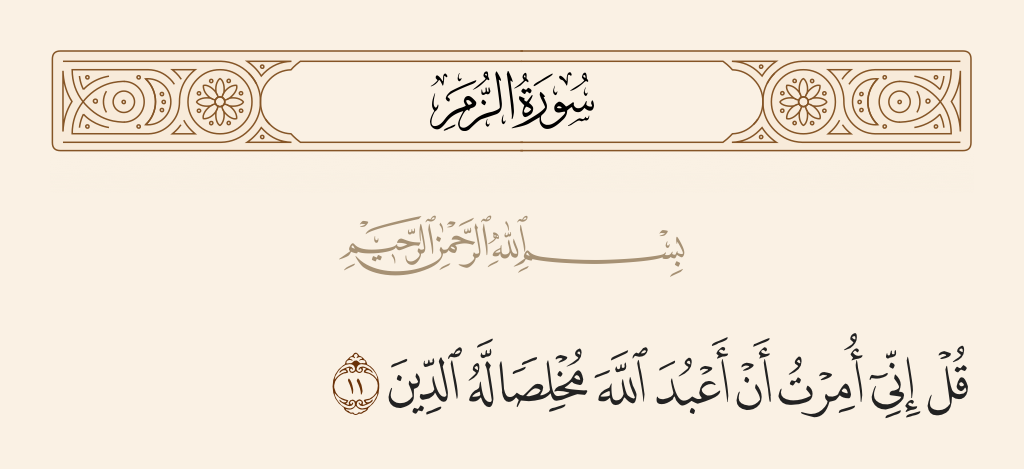 سُورَةُ الزُّمَرِ
بِسْمِ ٱللَّهِ ٱلرَّحْمَٰنِ ٱلرَّحِيمِ
قُلْ إِنِّيٓ أُمِرْتُ أَنْ أَعْبُدَ ٱللَّهَ مُخْلِصًا لَّهُ ٱلدِّينَ ١١